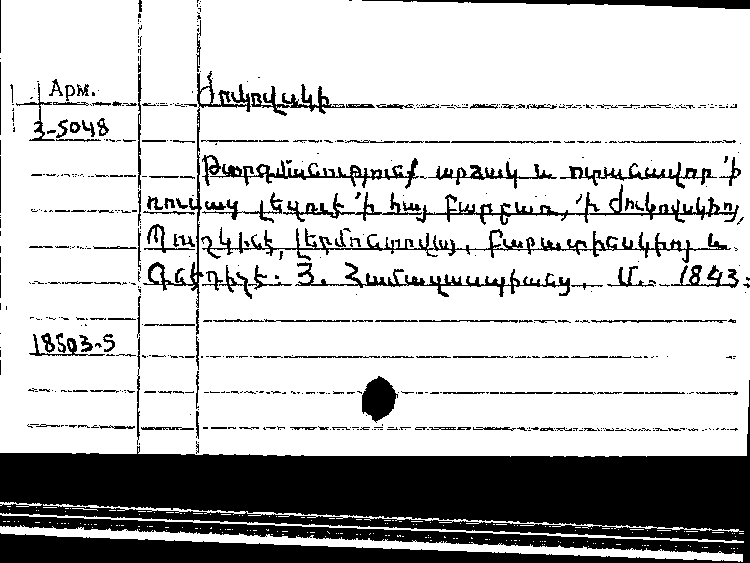 Арм.
Ժուկովսկի
3-5048
Թարգմանութիւնք արձակ և ոտանաւոր ՚ի
ռուսաց լեզուէ ՚ի հայ բարբառ, ՚ի Ժուկովսկիոյ,
Պուշկինէ, Լերմոնտովայ, Բարատինսկիոյ և
Գնեդիչէ. Յ. Համազասպեանց. Մ.. 1843:
18503-5